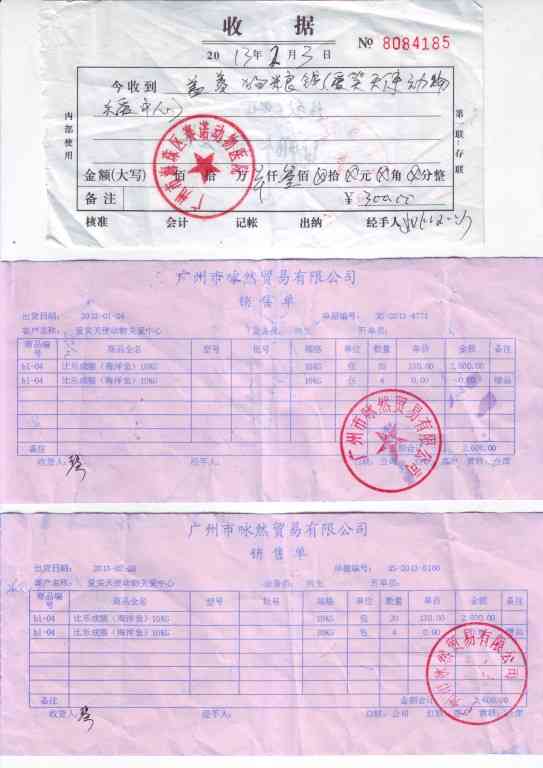 收 据
2013年2月3日 № 8084185
今收到 狗粮钱(爱笑天使动物
关爱中心)
内部使用
第一联:存联
广州市海珠区赛诺动物医院
金额(大写) 佰 拾 万 仟 佰 拾 元 角 分整
备注 ¥3000.00
核准 会计 记帐 出纳 经手人
广州市咏然贸易有限公司
销售单
出货日期: 2013-01-24 单据编号: XS-2013-4771
客户名称: 爱笑天使动物关爱中心 业务员: 开单员:
商品编号 商品全名 型号 批号 规格 单位 数量 单价 金额 备注
bl-04 比乐成猫(海洋鱼)10KG 10KG 包 20 130.00 2,600.00
bl-04 比乐成猫(海洋鱼)10KG 10KG 包 4 0.00 0.00 赠品
广州市咏然贸易有限公司
备注 2,600.00
收货人: 经手人:
广州市咏然贸易有限公司
销售单
出货日期: 单据编号: XS-2013-5100
客户名称: 爱笑天使动物关爱中心 业务员: 开单员:
商品编号 商品全名 型号 批号 规格 单位 数量 单价 金额 备注
bl-04 比乐成猫(海洋鱼)10KG 10KG 包 20 130.00 2,600.00
bl-04 比乐成猫(海洋鱼)10KG 10KG 包 4 0.00 赠品
广州市咏然贸易有限公司
备注 金额合计 2,600.00
收货人: 经手人: 白联:公司